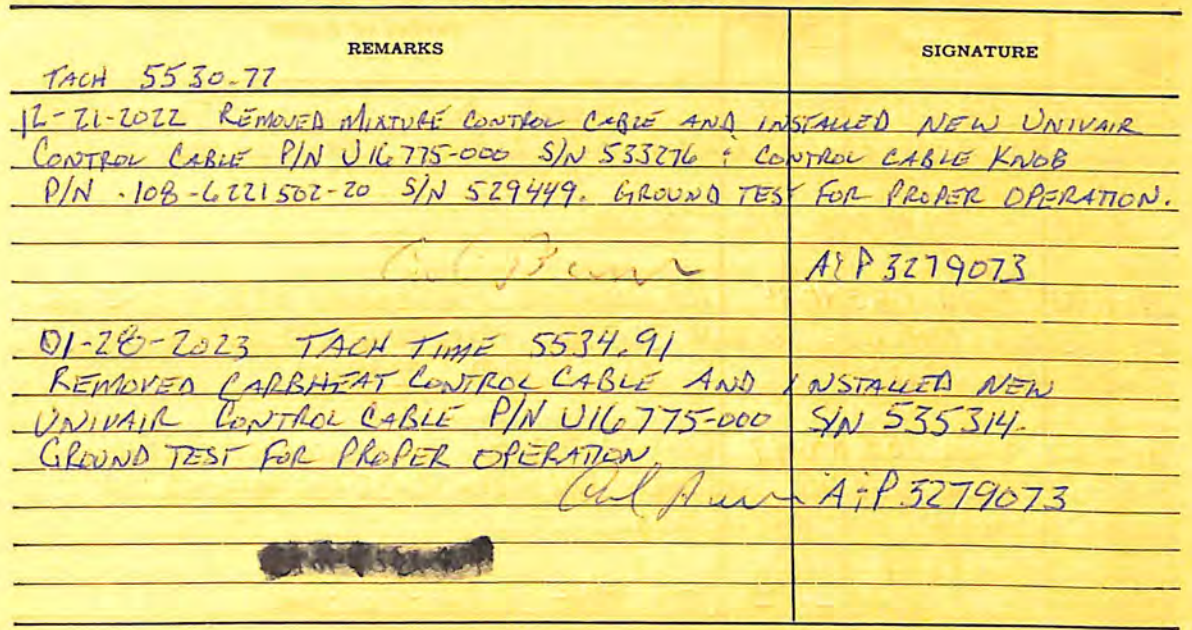 REMARKS SIGNATURE
TACH 5530.77
12-21-2022 REMOVED MIXTURE CONTROL CABLE AND INSTALLED NEW UNIVAIR
CONTROL CABLE P/N U16775-000 S/N 533276 & CONTROL CABLE KNOB
P/N .108-6221502-20 S/N 529449. GROUND TEST FOR PROPER OPERATION.
A&P 3279073
01-28-2023 TACH TIME 5534.91
REMOVED CARBHEAT CONTROL CABLE AND INSTALLED NEW
UNIVAIR CONTROL CABLE P/N U16775-000 S/N 535314.
GROUND TEST FOR PROPER OPERATION.
A&P 3279073